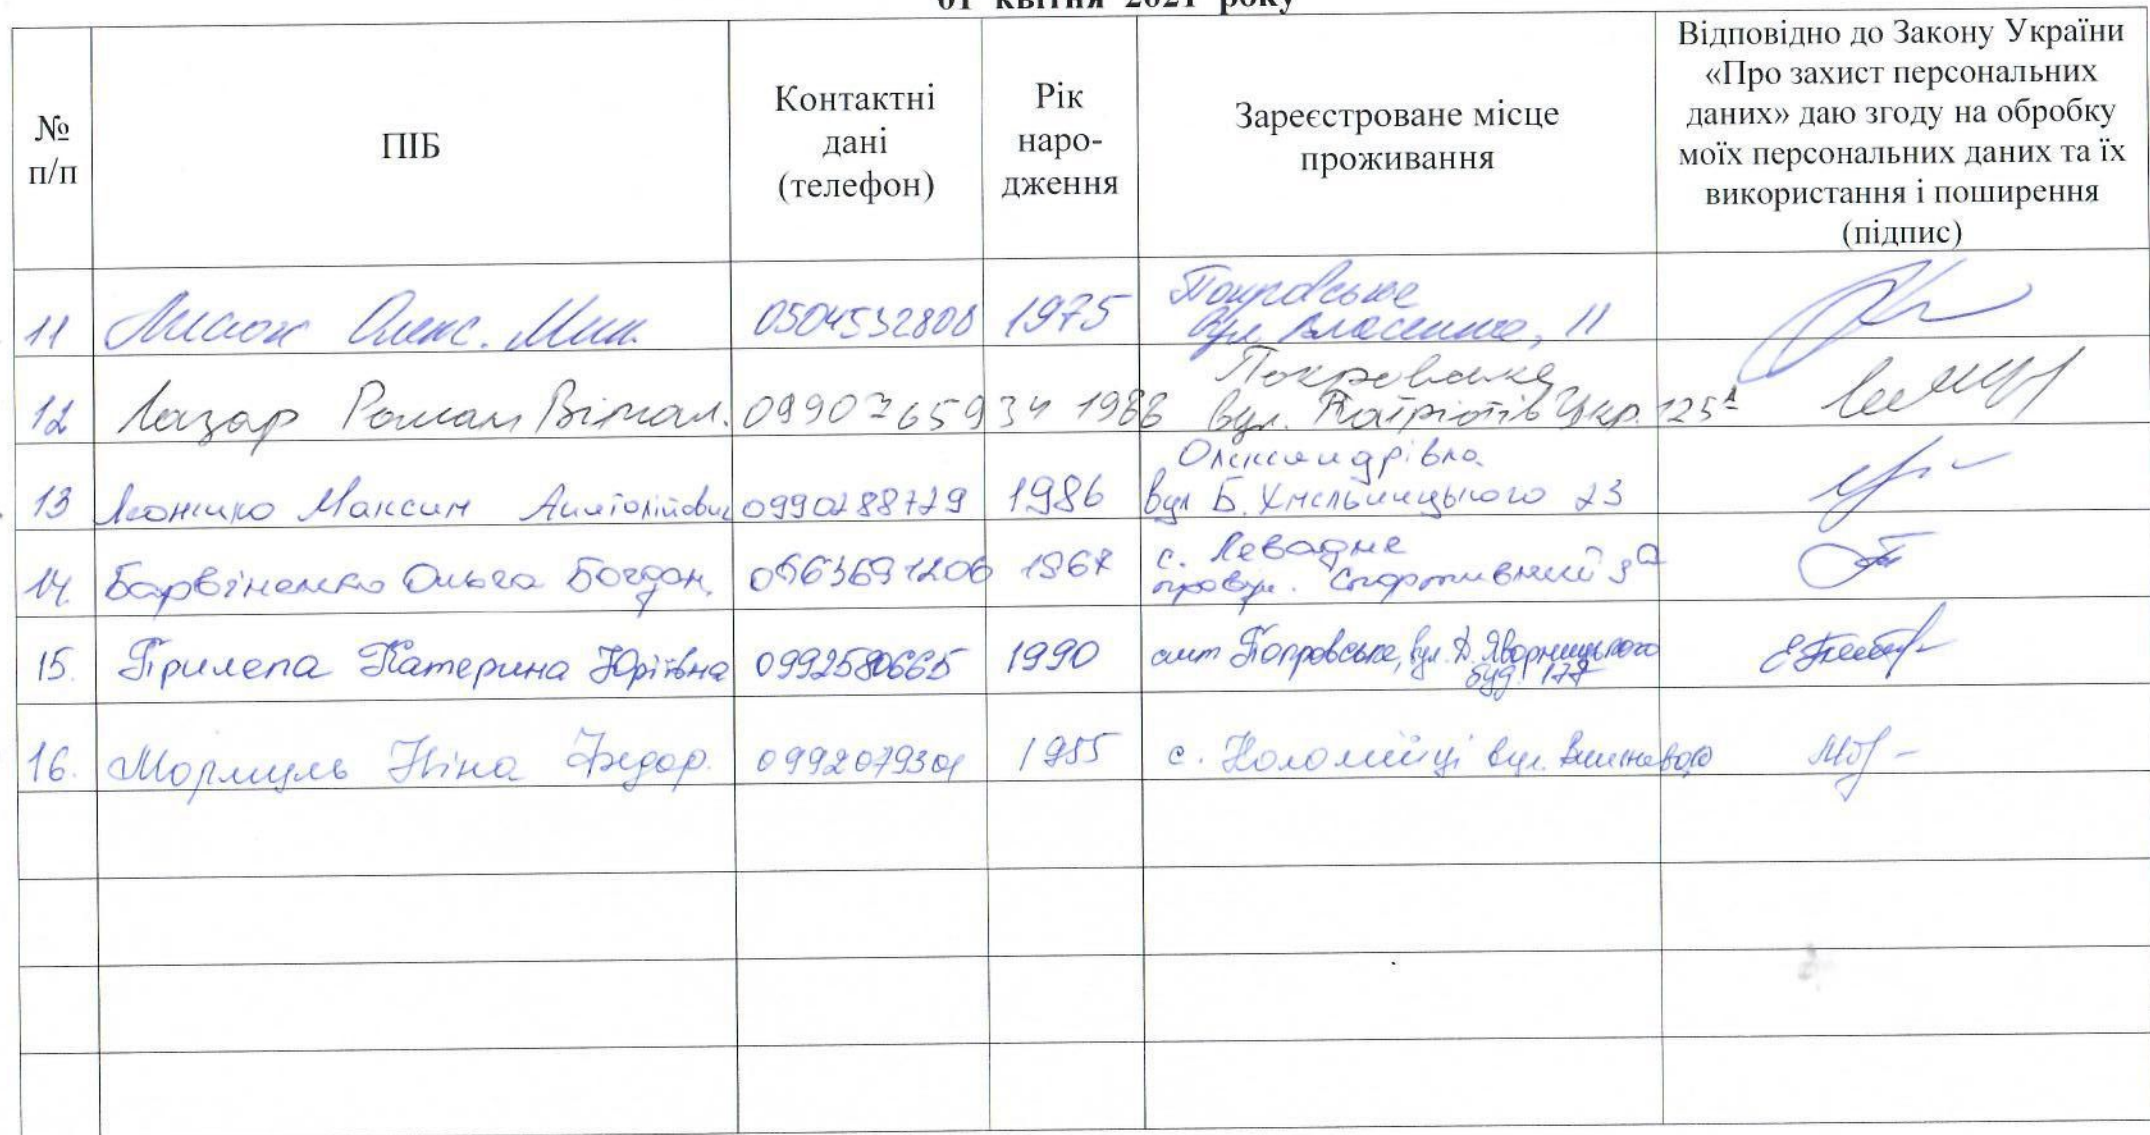 01 квітня 2021 року
№ п/п
ПІБ
Контактні дані (телефон)
Рік наро-дження
Зареєстроване місце проживання
Відповідно до Закону України
«Про захист персональних
даних» даю згоду на обробку
моїх персональних даних та їх
використання і поширення
(підпис)
11 Олекс. Мик. 0504532808 1975 Покровське
вул. Власенка, 11
12 Лазар Роман Вітал. 0990765934 1983 Покровське
вул. Патріотів Укр. 125А
13 Максим Анатолійович 0990288729 1986 Олександрівка
вул Б. Хмельницького 23
14. Барвіненко Ольга Богдан. 0563691206 1967 с. Левадне
провул. Спортивний 3а
15. Прилепа Катерина Юріївна 0992580665 1990 смт Покровське, вул. Д. Яворницького
буд. 177
16. Мормуль Ніна Федор. 0992079301 1955 с. Коломійці вул. Вишнева